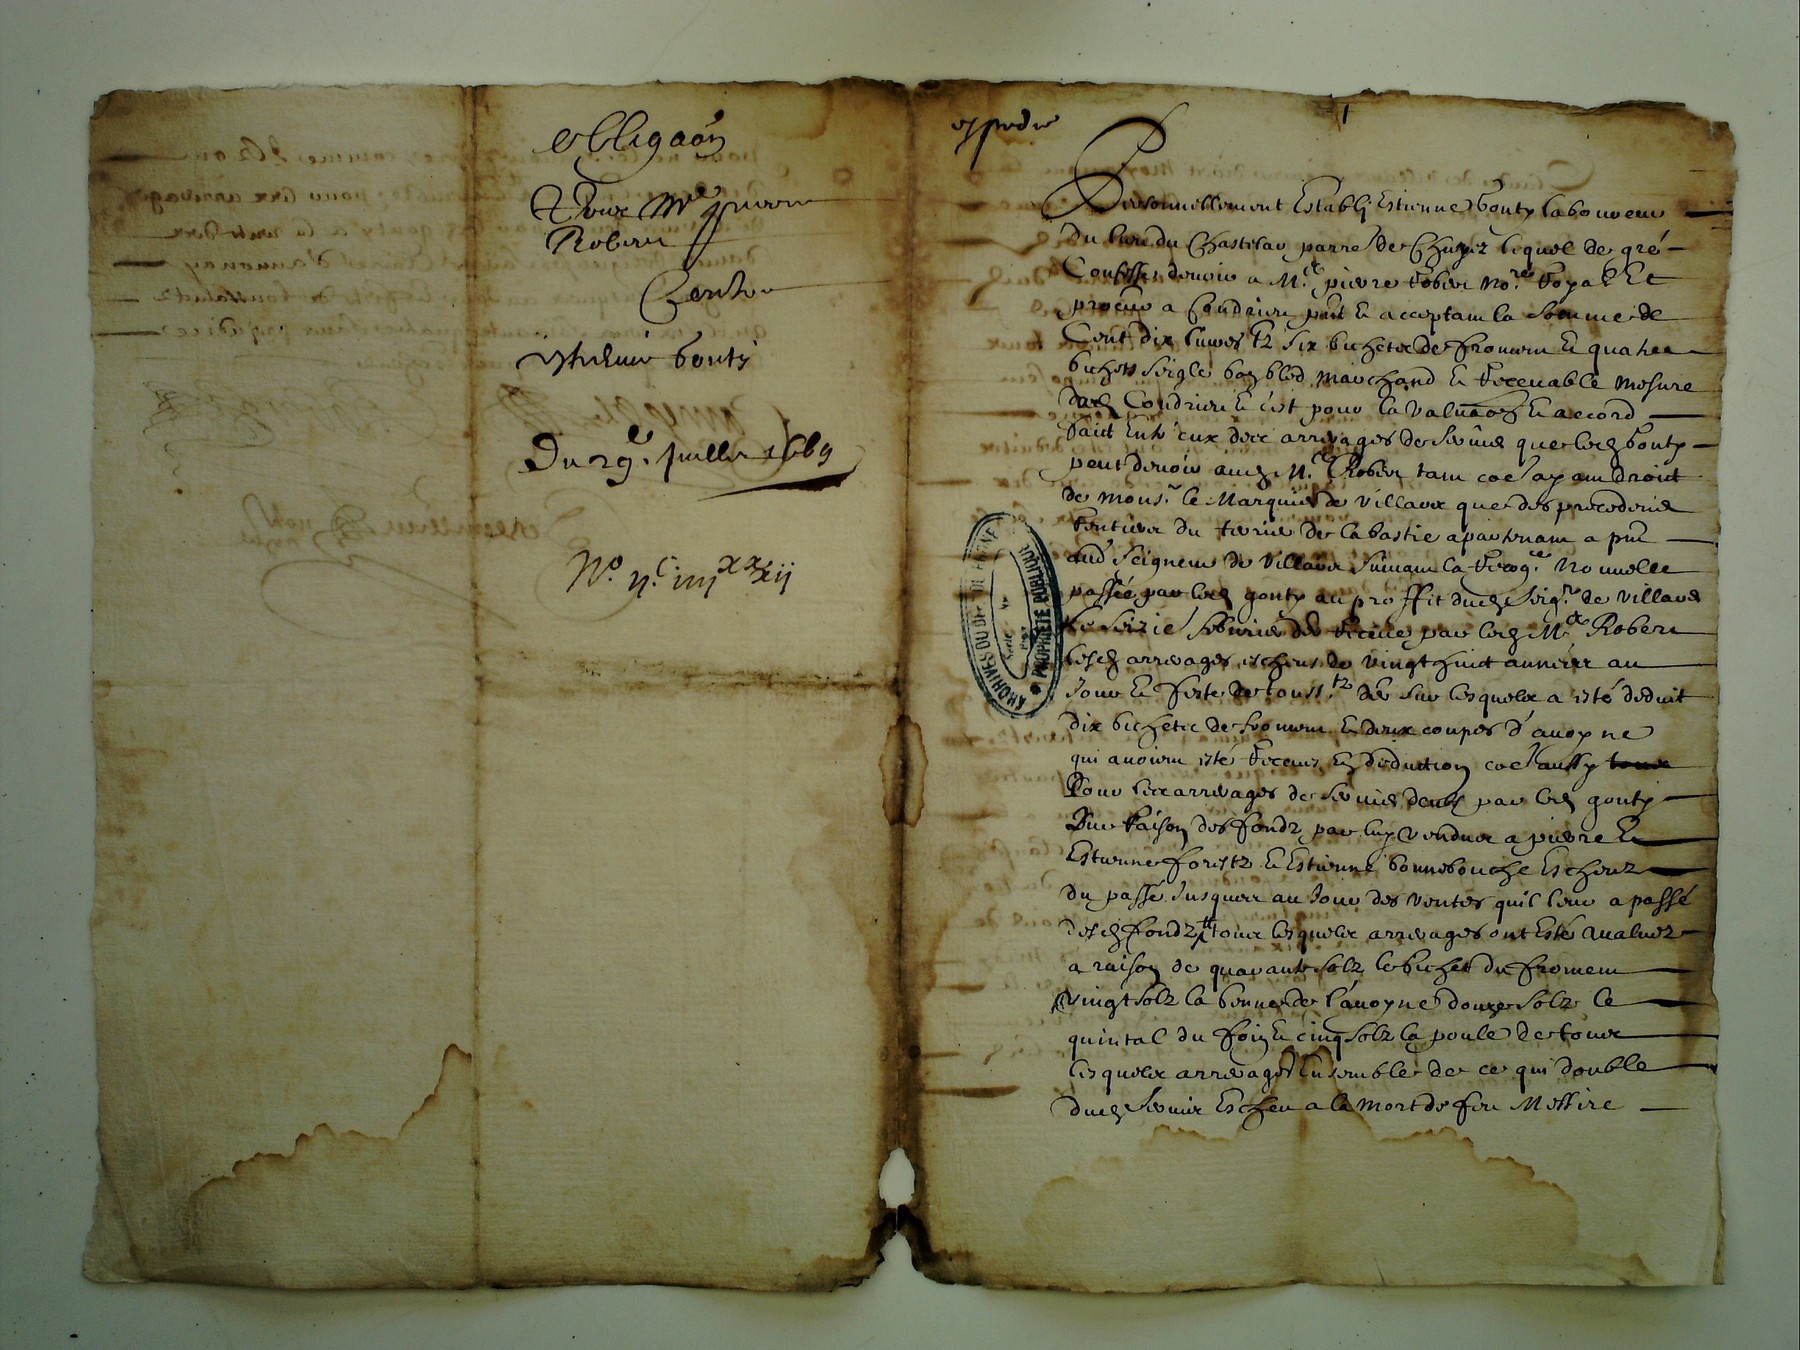 obligaõn
Pour Me pierre
Robert
Contre
estienne gonty
Du 29e. Juillet 1669
No. ii.c iiijxx xij
expedie
1
Personnellement Estably Estienne gonty laboureur
du lieu du Chastelar parre de Chuyez lequel de gré
Confesse devoir a Me. pierre Robert nore. Royal Et
procur a Condrieu pnt & acceptant la somme de
Cent dix livres tz six bichetz de froment & quatre
bichetz seigle bon bled marchand & recevable mesure
dud Condrieu & c'est pour la valuaon & accord
faict entr'eux des arrerages de servis que led gonty
peut devoir aud Me. Robert tant co͠e ayant droict
de monsr. le Marquis de villars que des precedents
rentiers du terrier de la bastie apartenant a pnt
aud Seigneur de villars suivant la recog.ce nouvelle
passée par led gonty au proffit dud Seigr. de villars
le seizie fevrier der receue par led Me Robert
lesd arrerages escheus de vingt huict années au
Jour & feste de touss.tz der sur lesquels a esté deduit
dix bichetz de froment & deux coupes d'avoyne
qui avoient esté receus en deduction co͠e aussy
Pour les arrerages de servis deubs par led gonty
Pour raison des fondz par luy vendus a pierre &
Estienne forestz & Estienne bonnebouche Escheuz
du passé Jusques au Jour des ventes qu'il leur a passé
desd fondz tous lesquels arrerages ont esté evaluez
a raison de quarante solz le bichet du froment
vingt solz la benne de l'avoyne douze solz le
quintal du foin & cinq solz la poule de tous
lesquels arrerages Ensemble de ce qui double
dud servis Escheu a la mort de feu Messire
ARCHIVES DU DEP
PROPRIÉTÉ PUBLIQUE